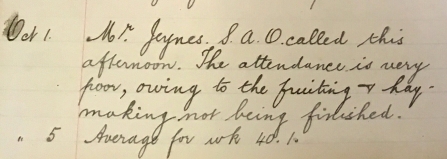 Oct 1. Mr Jeynes. S. A. O. called this
afternoon. The attendance is very
poor, owing to the fruiting & hay-
making not being finished.
" 5 Average for wk 40.1.